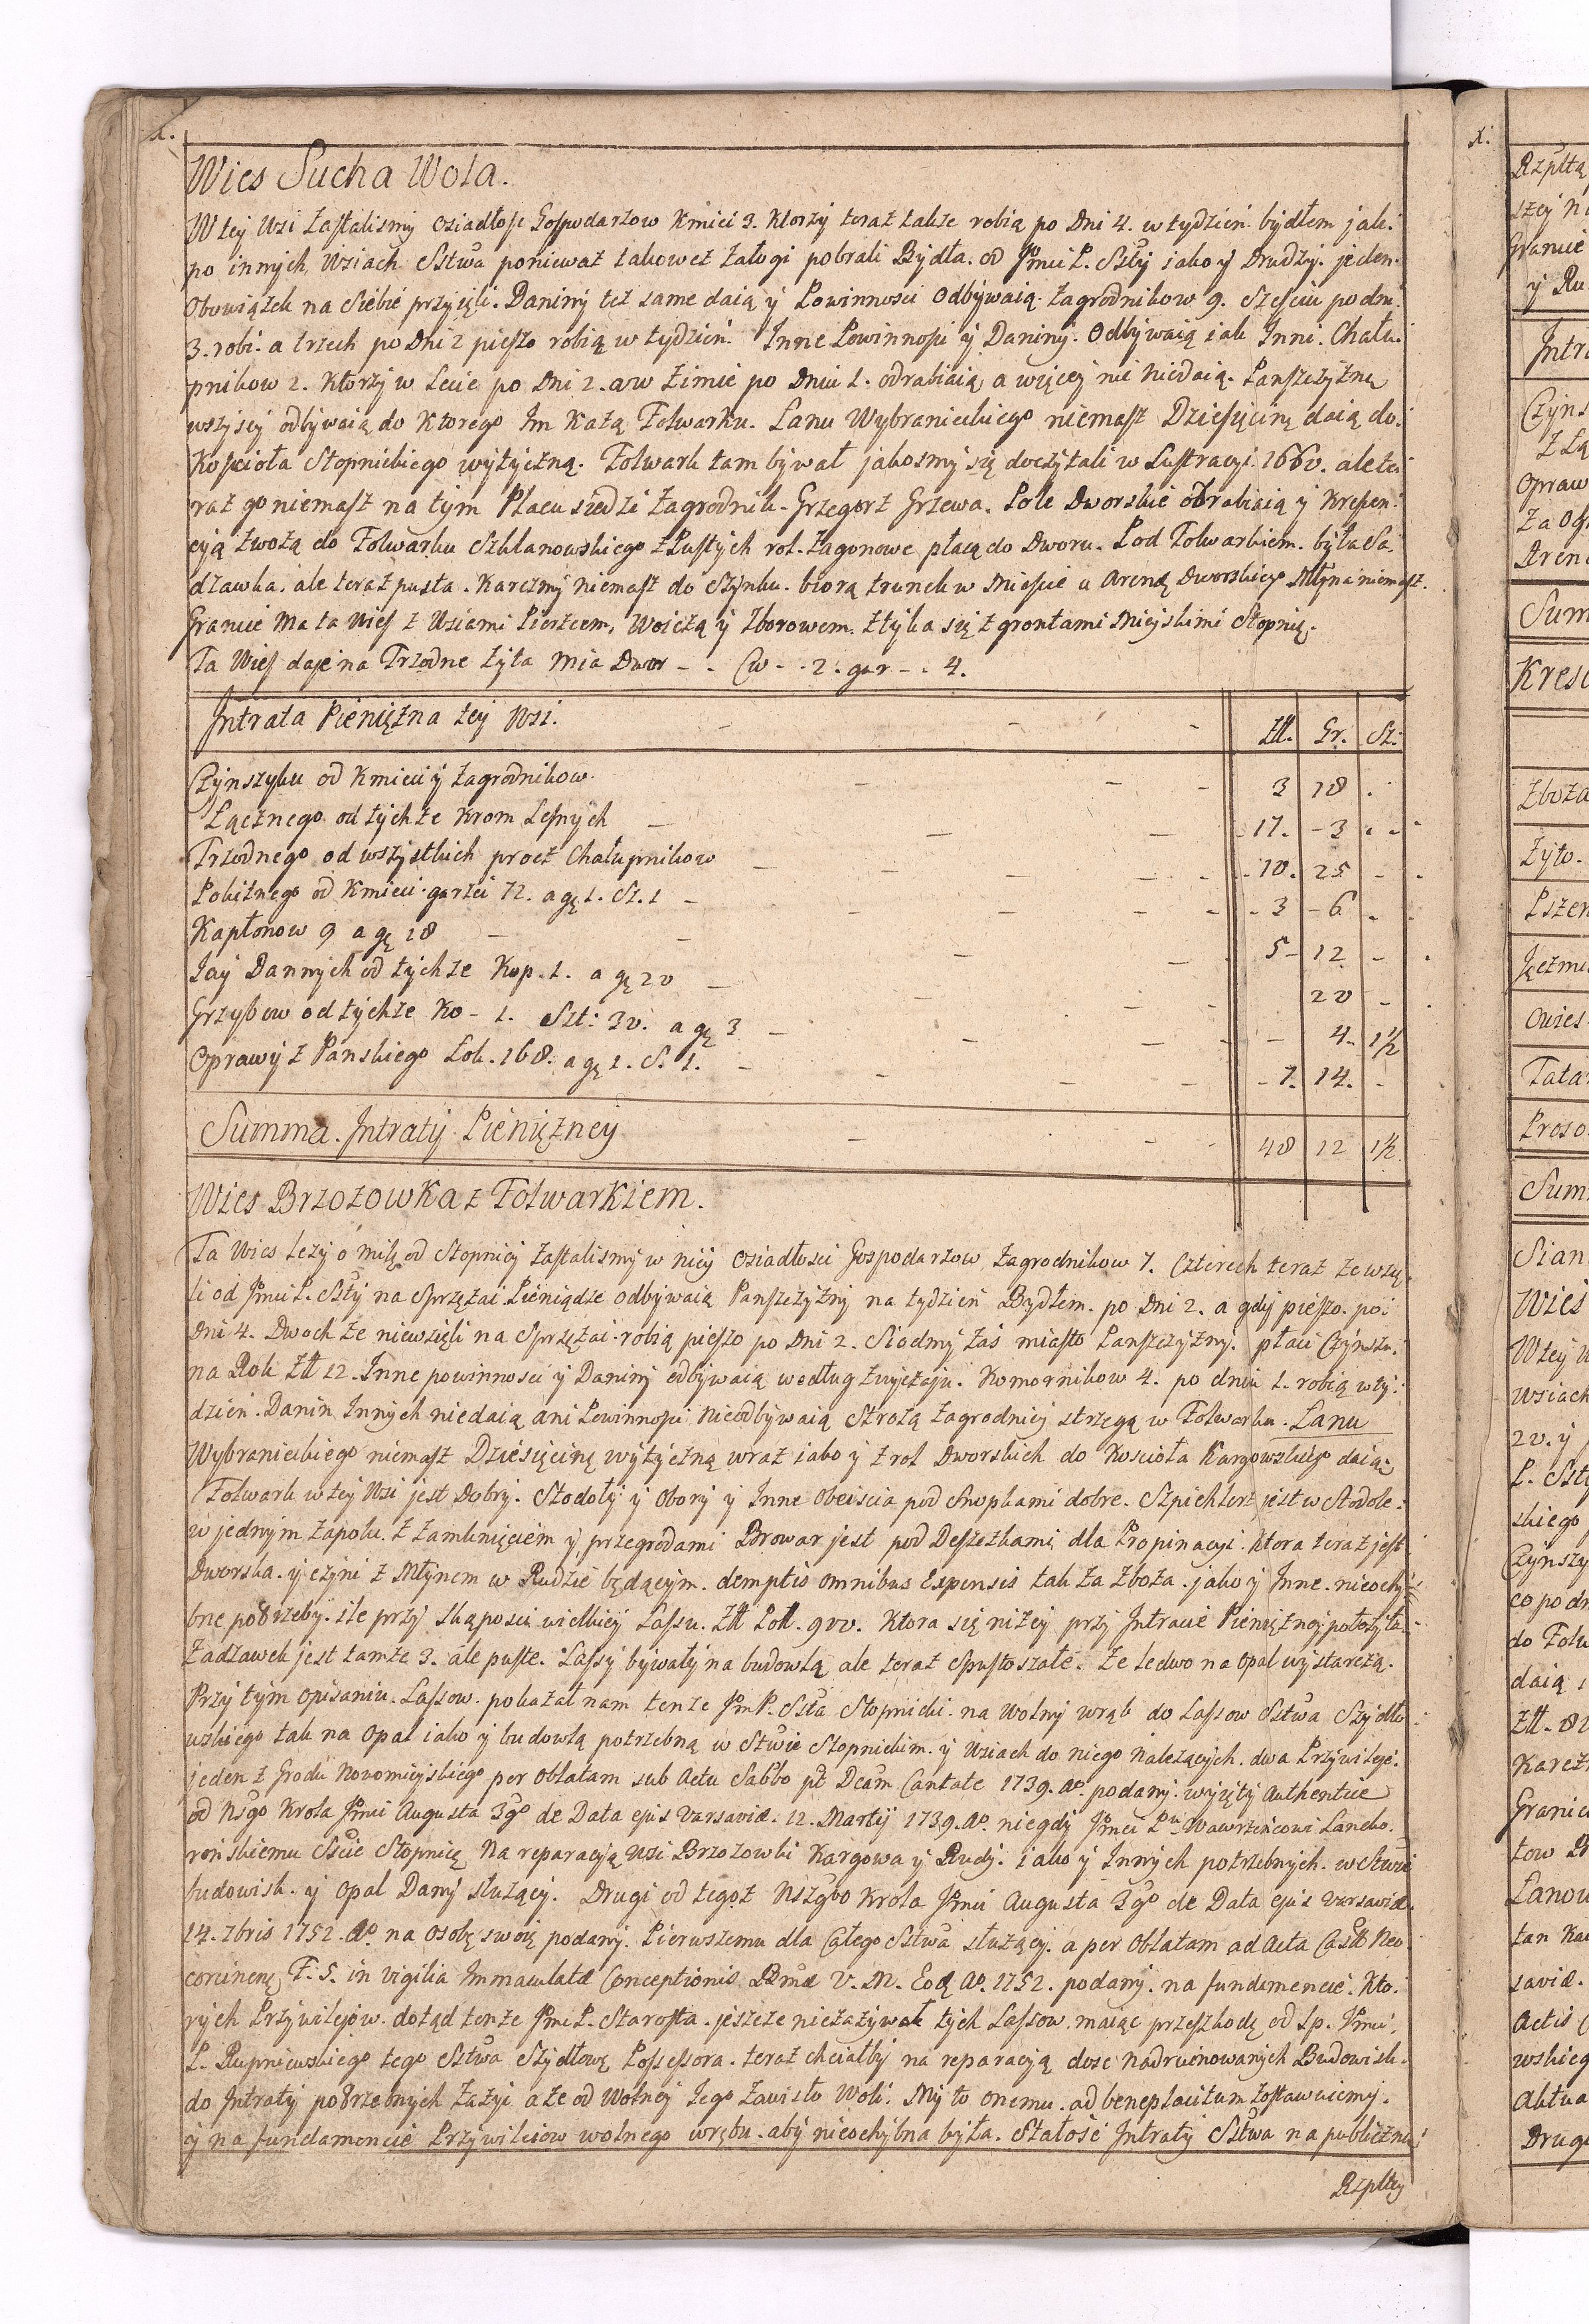 Wies Sucha Wola.
W tey Wsi zastalismy osiadłosc Gospodarzow Kmieci 3. Ktorzy teraz takze robią po Dni 4. w tydzien bydłem jak.
po innych Wsiach Sstwa poniewaz takowez załogi pobrali Bydła. od Jmci P. Ssty iako y Drudzy. jeden.
Obowiązek na Siebie przyięli. Daniny tez same daią y Powinnosci odbywaią. Zagrodnikow 9. Szesciu po dni.
3. robi. a trzech po Dni 2 pieszo robią w tydzien. Inne Powinnosci y Daniny. Odbywaią iak Inni. Chału.
pnikow 2. Ktorzy w Lecie po Dni 2. a w Zimie po Dniu 1. odrabiaią a więcey nic niedaią. Panszczyznę
wszyscy odbywaią do Ktorego Im Każą Folwarku. Łanu Wybranieckiego niemasz Dziesięcinę daią do.
Koscioła Stopnickiego wytyczną. Folwark tam bywał jakosmy się doczytali w Lustracyi. 1660. ale te.
raz go niemasz na tym Placu siedzi Zagrodnik. Grzegorz Grzewa. Pole Dworskie obrabiaią y Krescen.
cyą zwożą do Folwarku Szklanowskiego z Pustych rol. Zagonowe płacą do Dworu. Pod Folwarkiem. była Sa.
dzawka. ale teraz pusta. Karczmy niemasz do szynku. biorą trunek w Miescie u Arendę Dworskiego Młyna niemasz.
Granice Ma ta Wies z Wsiami Pieszcem, Woiczą y Zborowem. Ztyka się z grontami Mieyskimi Stopnię.
Ta Wies daie na Trzodne żyta mia Dwor - . Cw - . 2. gar - . 4.
Intrata Pieniężna tey Wsi. - - - Zł. Gr. Sz:
Czynszyku od Kmieci y Zagrodnikow. - - - 3 18 .
Łącznego od tychze Krom Lesnych - - - 17. - 3 . -
Trzodnego od wszystkich procz Chałupnikow - - - 10. 25 -
Pobitnego od Kmieci garzci 72. a gę 1. Sz. 1 - - - 3 - 6 .
Kapłonow 9 a gę 18 - - - 5 - 12 -
Jay Dannych od tychze Kop. 1. a gę 20 - - - 20 -
Grzybow od tychze Ko - 1. Szt: 30. a gę 3 - - - 4 - 1½
Oprawy z Panskiego Łok. 168. a gę 1. S. 1. - - - 7. 14. -
Summa. Intraty Pieniężney - - 48 12 1½
Wies Brzozowka z Folwarkiem.
Ta Wies lezy o milę od Stopnicy zastalismy w niey osiadłosci Gospodarzow Zagrodnikow 7. Czterech teraz ze wzię.
li od Jmci P. Ssty na Sprzężai Pieniądze odbywaią Panszczyzny na tydzien Bydłem. po Dni 2. a gdy pieszo. po:
Dni 4. Dwoch ze niewzięli na Sprzężai robią pieszo po Dni 2. Siodmy zas miasto Panszczyzny. płaci Czynszu.
na Rok Złł 12. Inne powinnosci y Daniny odbywaią według zwyczaju. Komornikow 4. po dniu 1. robią w ty.
dzien. Danin Innych niedaią ani Powinnosci nieodbywaią Strożą Zagrodnicy strzegą w Folwarku. Łanu
Wybranieckiego niemasz Dziesięcinę wytyczną wraz iako y z rol Dworskich do Koscioła Kargowskiego daią.
Folwark w tey Wsi jest Dobry. Stodoły y Obory y Inne Obeiscia pod Snopkami dobre. Szpichlerz jest w Stodole.
w jednym zapolu. z zamknięciem y przegrodami Browar jest pod Deszczkami dla Propinacyi. Ktora teraz jest
Dworska. y czyni z Młynem w Rudzie będącym. demptis omnibus Expensis tak za zboża. jako y Inne. nieochy.
bne potrzeby. ile przy skąposci wielkiey Lassu. Złł Poll. 900. Ktora się niżey przy Intracie Pieniężney położyła.
Zadzawek jest tamze 3. ale puste. Lassy bywały na budowlą ale teraz spustoszałe. ze ledwo na opal wystarczą.
Przy tym opisaniu. Lassow. pokazał nam tenze JmP. Ssta Stopnicki. na wolny wrąb do Lassow Sstwa Szydło.
wskiego tak na Opał iako y budowlą potrzebną w Sstwie Stopnickim. y Wsiach do niego nalezących. dwa Przywileje.
jeden z Grodu Nowomieyskiego per Oblatam sub Actu Sabbo pt Dcam Cantate 1739. Ao. podany. wyięty Authentice
od Nsgo Krola Jmci Augusta 3go de Data ejus Varsaviæ. 12. Martij 1739. Ao. niegdy Jmci Pu Wawrzencowi Lancko.
rońskiemu Sscie Stopnicę Na reparacyą Wsi Brzozowki Kargowa y Rudy. iako y Innych potrzebnych. w Sstwie
budowisk. y Opał Dany służący. Drugi od tegoż Nszgo Krola Jmci Augusta 3go de Data ejus Varsaviæ.
14. 7bris 1752. Ao. na osobę swoię podany. Pierwszemu dla Całego Sstwa służący. a per Oblatam ad Acta Castr Neo
corcinenę F. 5. in vigilia Immaculatæ Conceptionis Bmæ V. M. Eoq Ao. 1752. podany. na fundamencie. Kto.
rych Przywilejow. dotąd tenze Jmc P. Starosta. jeszcze niezażywał tych Lassow. maiąc przeszkodę od Sp. Jmci.
P. Rupniewskiego tego Sstwa Szydłowę Possessora. teraz chciałby na reparacyą dosc nadruinowanych Budowisk.
do Intraty potrzebnych zażyć a ze od Wolney Jego zawisło Woli. My to onemu. ad beneplacitum zostawuiemy.
y na fundamencie Przywileiow wolnego wrębu. aby nieochybna była. Stałość Intraty Sstwa na publiczne.
Rzpltey